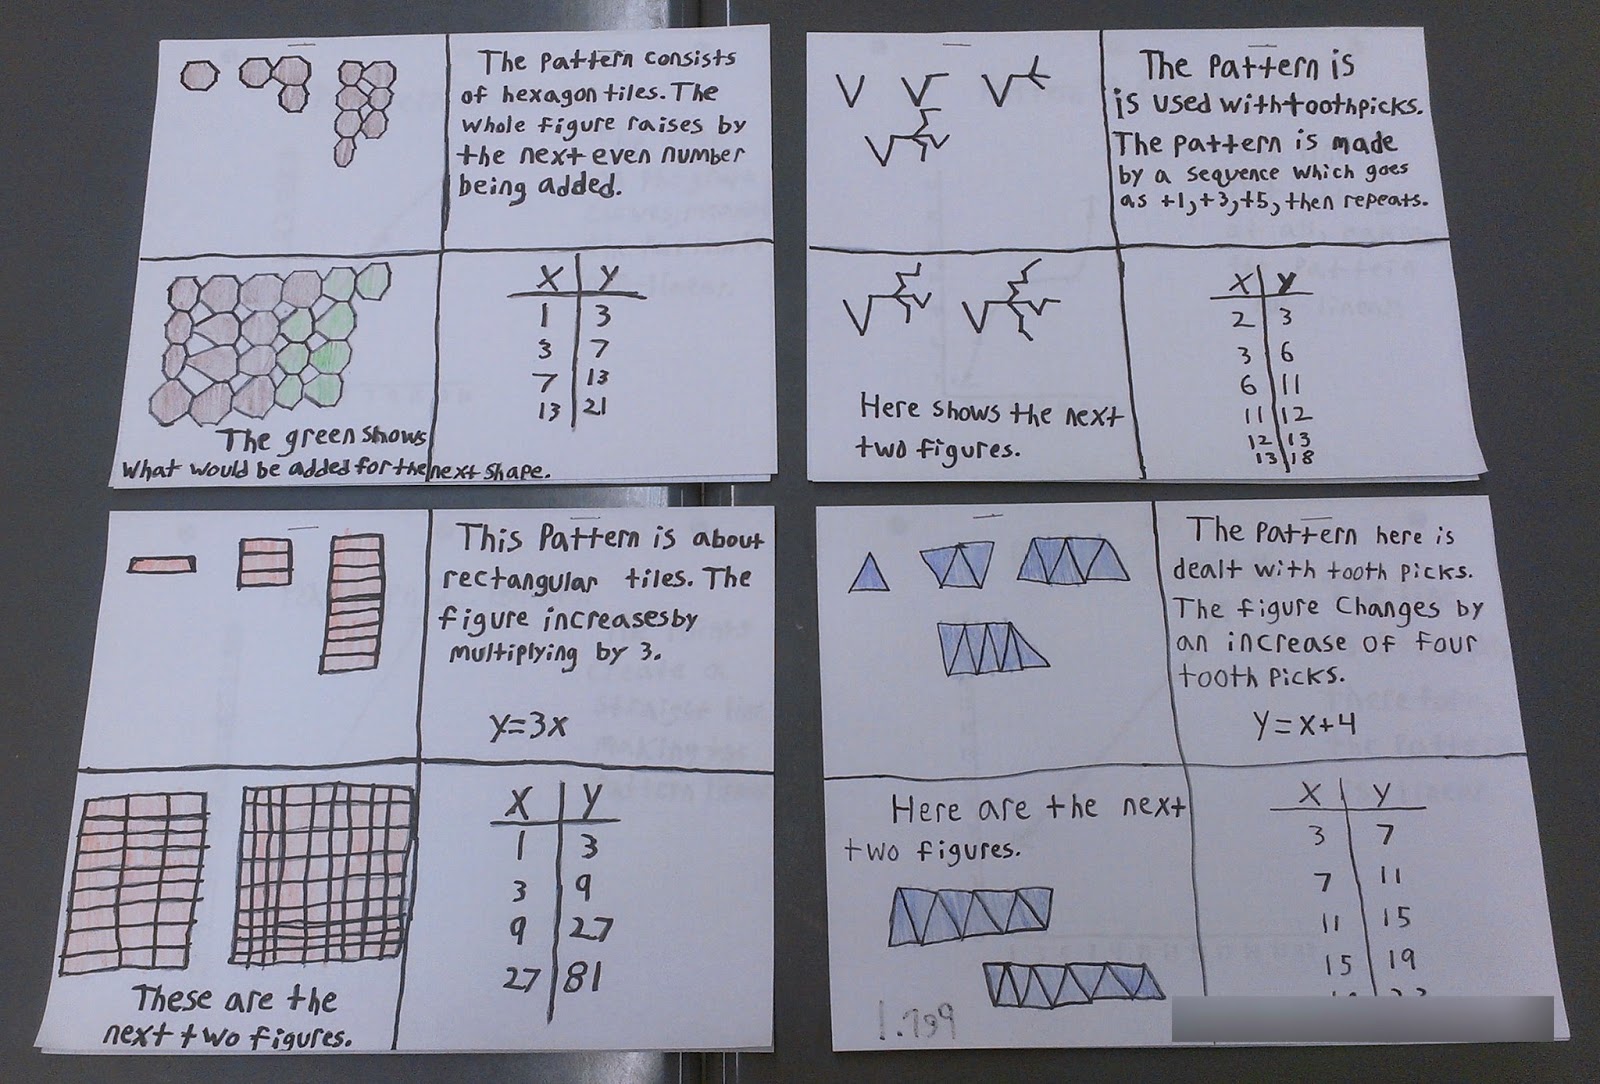 The pattern consists
of hexagon tiles. The
whole figure raises by
the next even number
being added.
The green shows
what would be added for the next shape.
X Y
1 3
3 7
7 13
13 21
The pattern is
is used with toothpicks.
The pattern is made
by a sequence which goes
as +1,+3,+5, then repeats.
Here shows the next
two figures.
X Y
2 3
3 6
6 11
11 12
12 13
13 18
This Pattern is about
rectangular tiles. The
figure increases by
multiplying by 3.
y=3x
These are the
next two figures.
X Y
1 3
3 9
9 27
27 81
The Pattern here is
dealt with tooth picks.
The figure changes by
an increase of four
tooth picks.
Y=X+4
Here are the next
two figures.
X Y
3 7
7 11
11 15
15 19